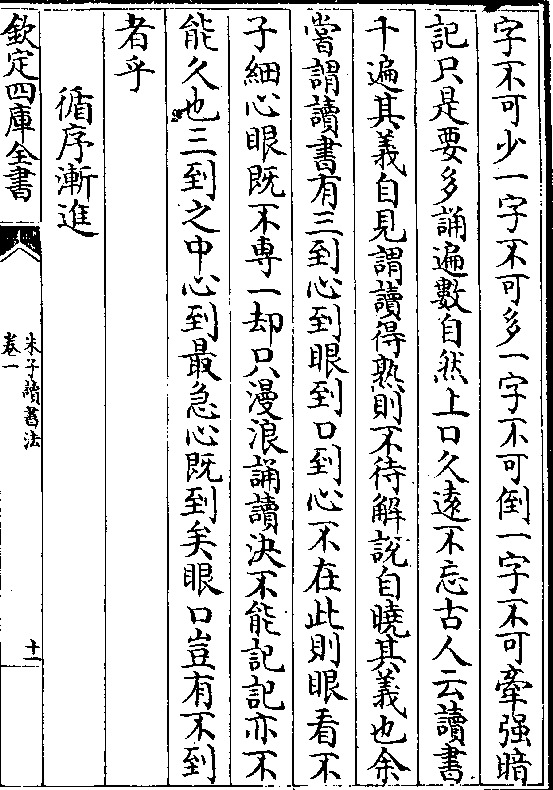 字不可少一字不可多一字不可倒一字不可牽强暗
記只是要多誦遍數自然上口久遠不忘古人云讀書
千遍其義自見謂讀得熟則不待解說自曉其義也余
嘗謂讀書有三到心到眼到口到心不在此則眼看不
子細心眼既不專一却只漫浪誦讀決不能記記亦不
能久也三到之中心到最急心既到矣眼口豈有不到
者乎
循序漸進
欽定四庫全書
朱子讀書法
卷一
十一